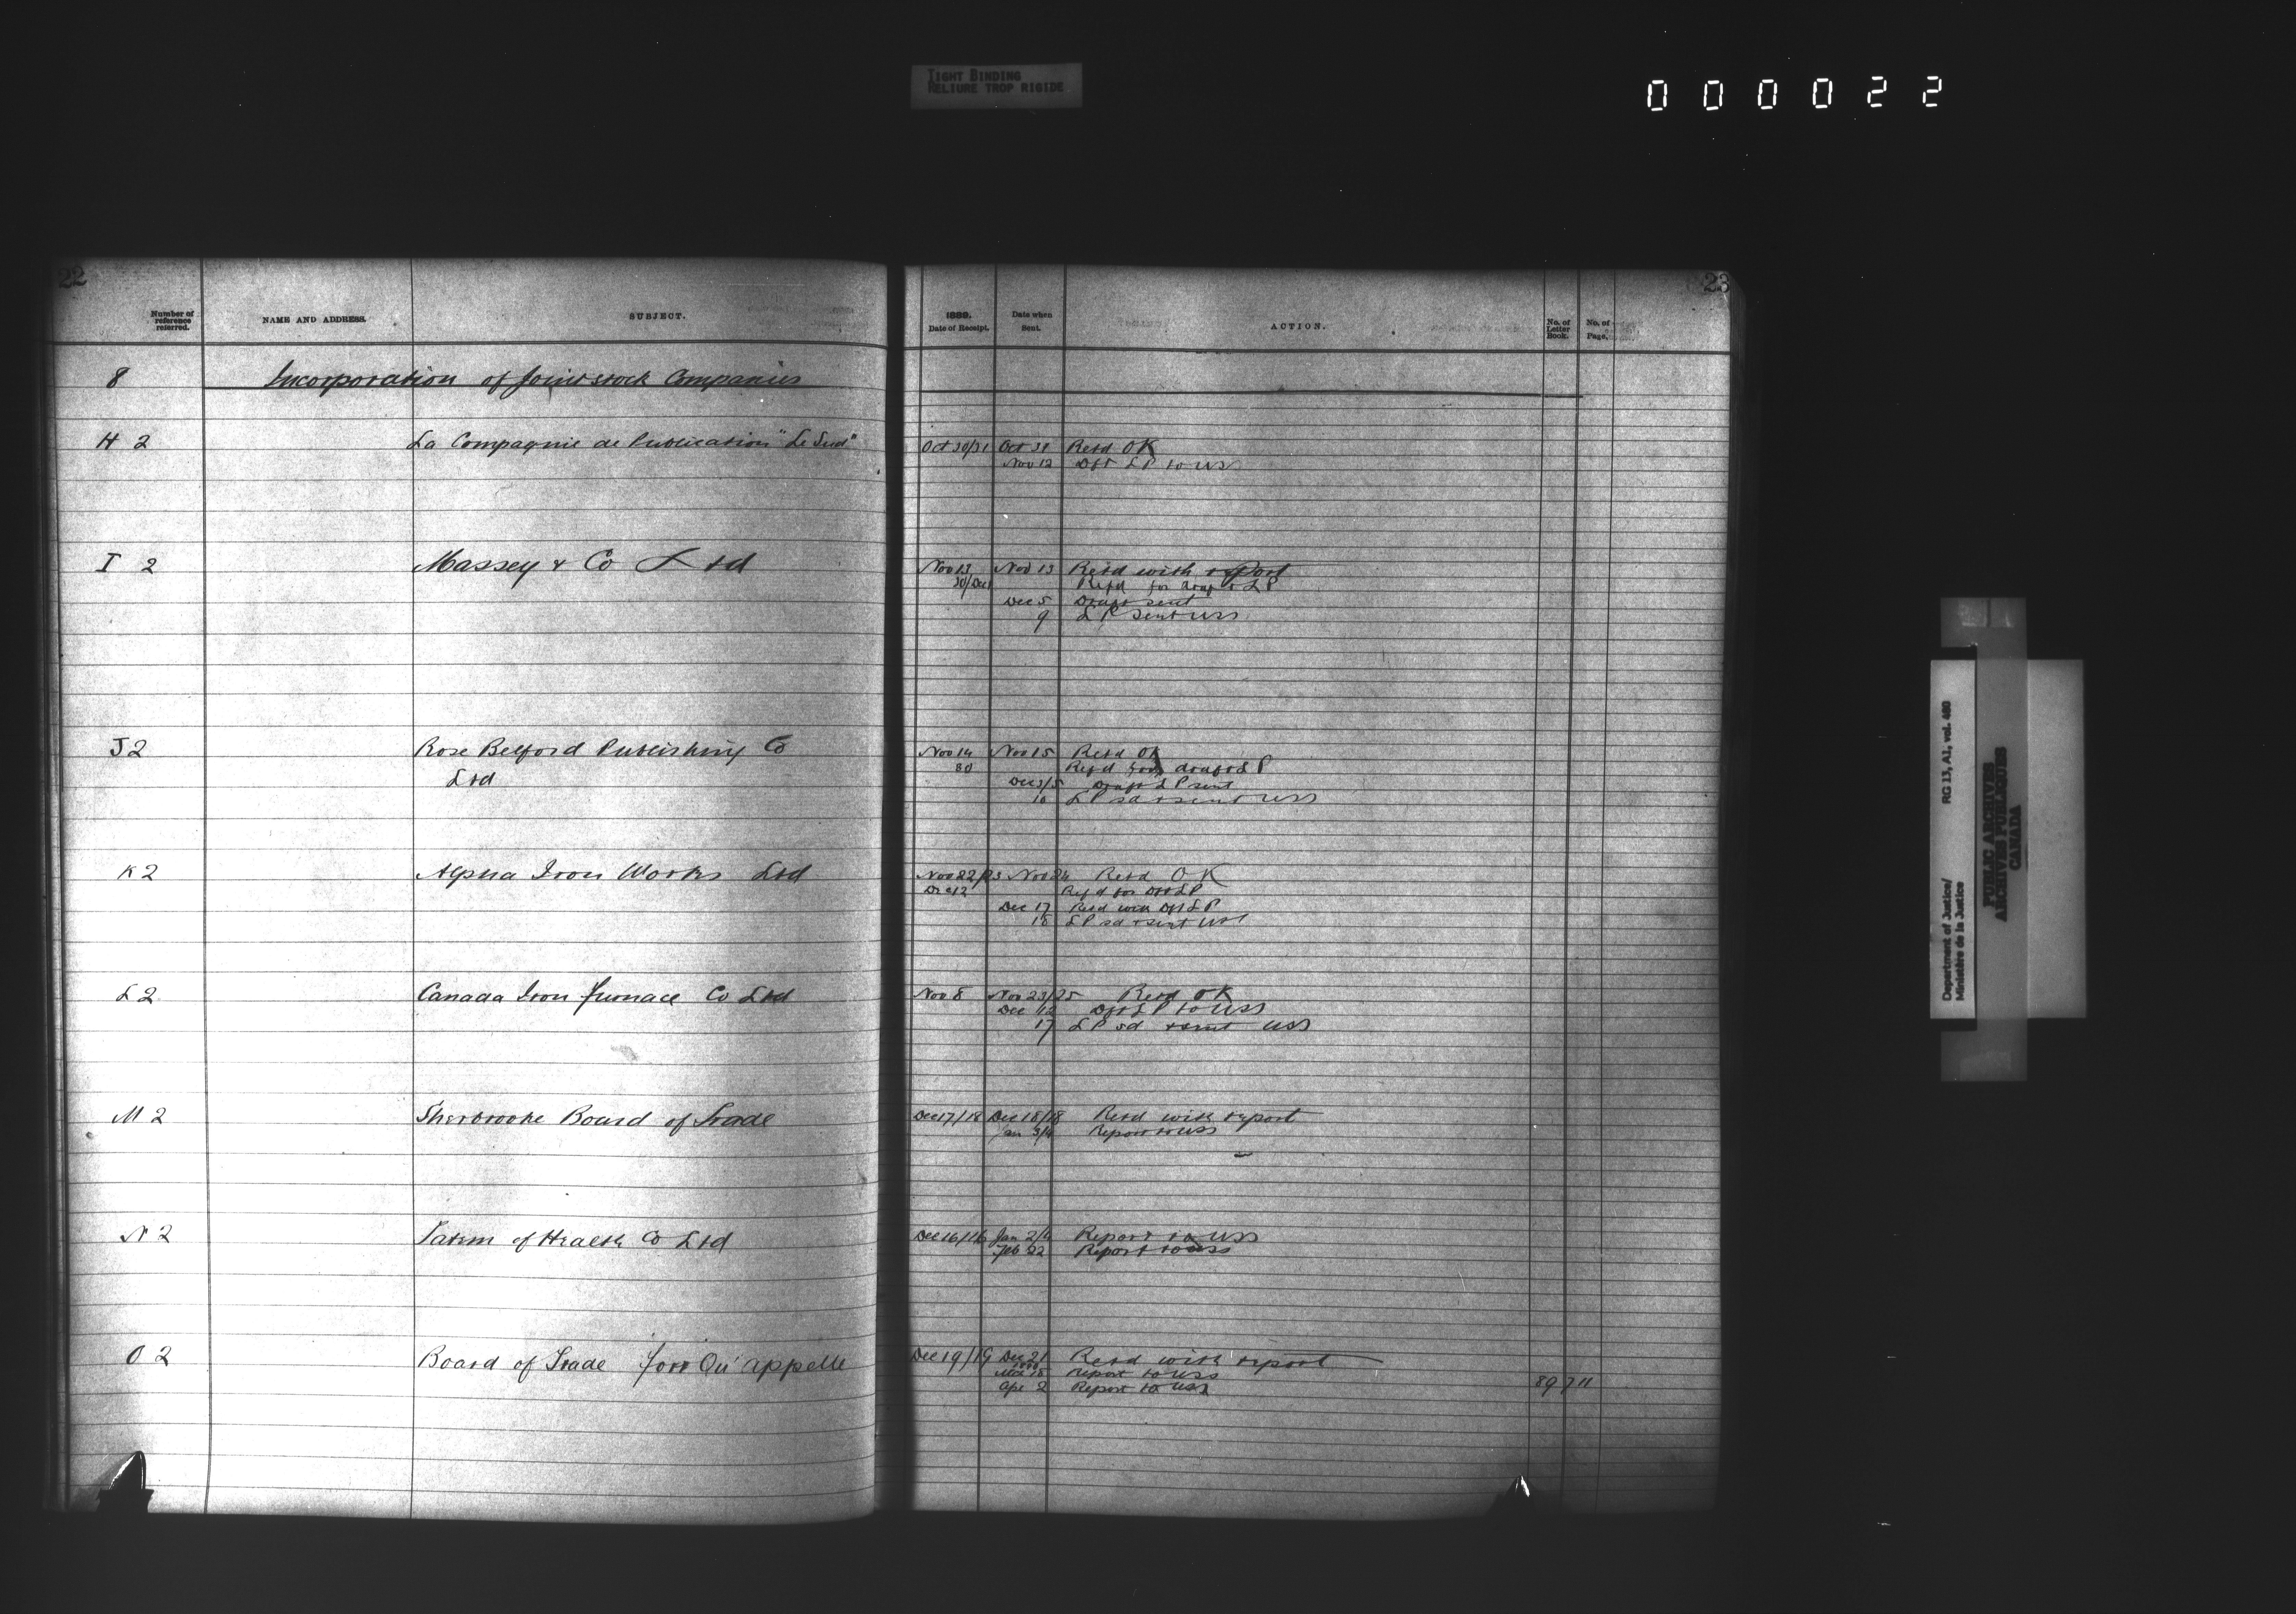 TIGHT BINDING
RELIURE TROP RIGIDE
000022
22
Number of reference referred.
NAME AND ADDRESS.
SUBJECT.
8 Incorporation of Joint stock Companies
H 2 La Compagnie de Publication "Le Sud"
I 2 Massey & Co Ltd
J 2 Rose Belford Publishing Co
Ltd
K 2 Alpha Iron Works Ltd
L 2 Canada Iron furnace Co Ltd
M 2 Sherbrooke Board of Trade
N 2 of Health Co Ltd
O 2 Board of Trade Fort Qu'appelle
23
1889.
Date of Receipt.
Date when Sent.
ACTION.
No. of Letter Book.
No. of Page.
Oct 30/31 Oct 31 Retd OK
Nov 12 Dft LP to USS
Nov 13 Nov 13 Retd with report
30/Dec 1 Refd for draft LP
Dec 5 Draft sent
9 LP sent USS
Nov 14 Nov 15 Retd OK
30 Refd for draft LP
Dec 3/5 Draft LP sent
10 LP sd & sent USS
Nov 22/23 Nov 24 Retd OK
Dec 12 Refd for Dft LP
Dec 17 Retd with Dft LP
18 LP sd & sent USS
Nov 8 Nov 23/25 Retd OK
Dec 12 Dft LP to USS
17 LP sd & sent USS
Dec 17/18 Dec 18/18 Retd with report
Jan 3/4 Report to USS
Dec 16/16 Jan 2/4 Report to USS
Feb 22 Report to USS
Dec 19/19 Dec 21 Retd with report
1890
Mch 18 Report to USS
Apr 2 Report to USS 89 711
Department of Justice/
Ministère de la Justice
RG 13, A1, vol. 480
PUBLIC ARCHIVES
ARCHIVES PUBLIQUES
CANADA